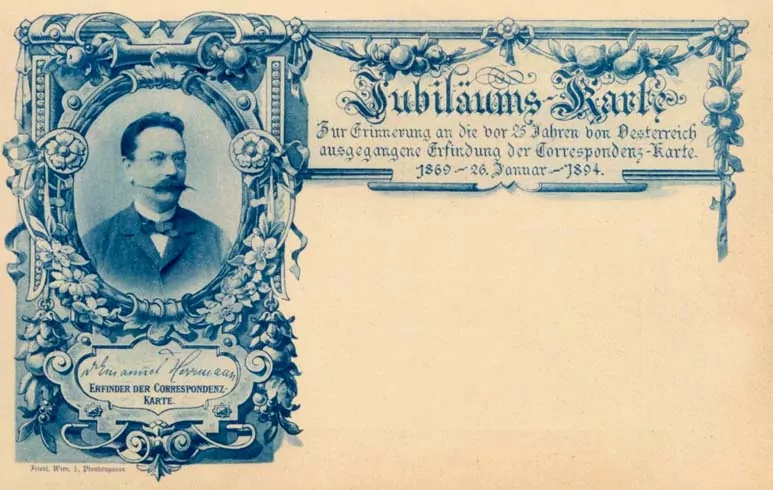 Jubiläums-Karte
Zur Erinnerung an die vor 25 Jahren von Oesterreich
ausgegangene Erfindung der Correspondenz-Karte.
1869 – 26. Januar – 1894.
Dr Emanuel Herrmann
ERFINDER DER CORRESPONDENZ-
KARTE.
Wien, I., Plankengasse.